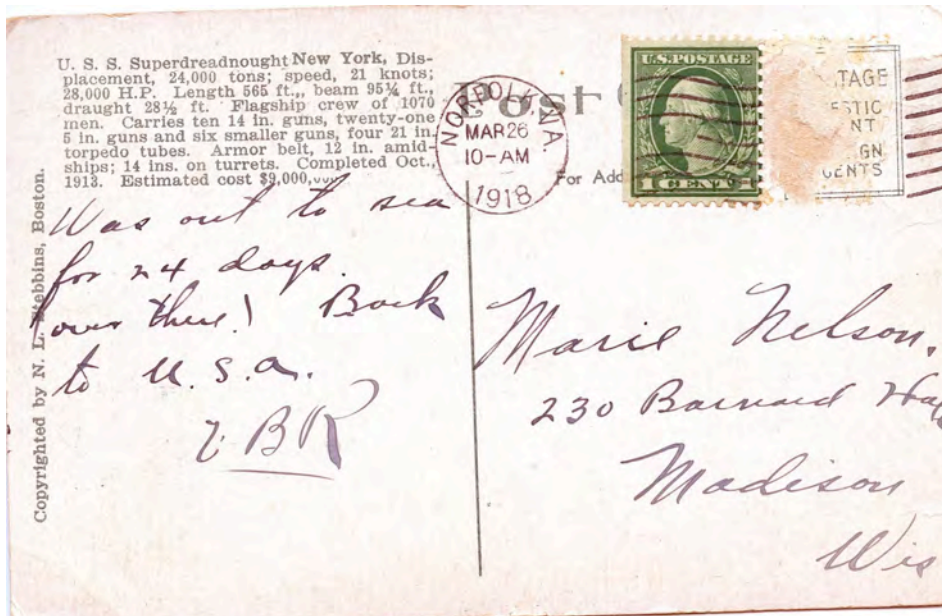 U. S. S. Superdreadnought New York, Dis-
placement, 24,000 tons; speed, 21 knots;
28,000 H.P. Length 565 ft.,, beam 95¼ ft.,
draught 28½ ft. Flagship crew of 1070
men. Carries ten 14 in. guns, twenty-one
5 in. guns and six smaller guns, four 21 in.
torpedo tubes. Armor belt, 12 in. amid-
ships; 14 ins. on turrets. Completed Oct.,
1913. Estimated cost $9,000,
Copyrighted by N. L. Stebbins, Boston.
Post
For Add
NORFOLK, VA.
MAR 26
10-AM
1918
U.S. POSTAGE
1 CENT 1
TAGE
ESTIC
NT
GN
CENTS
Was out to sea
for 24 days.
over there! Back
to U.S.A.
BR
Marie Nelson.
230 Barnard Hall
Madison
Wis